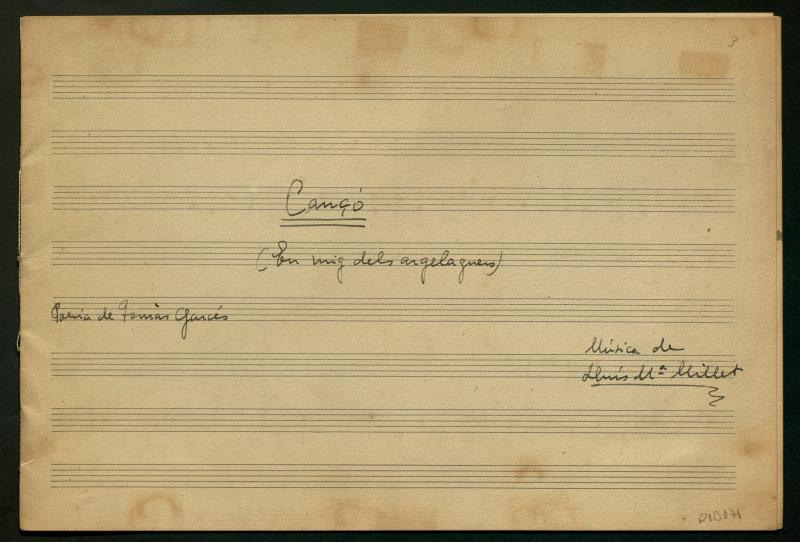 3
Cançó
(En mig dels argelaguers)
Poesia de Tomàs Garcés
Música de
Lluís Mª Millet